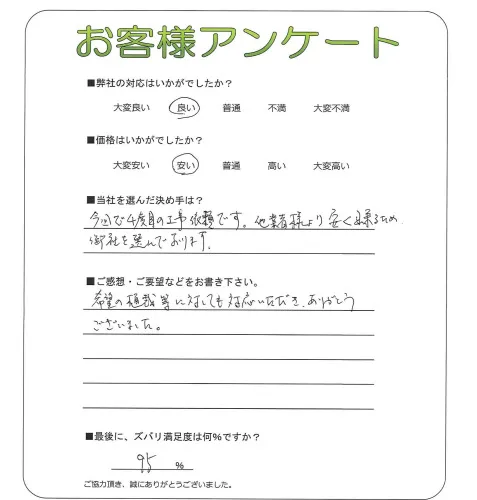 お客様アンケート
■弊社の対応はいかがでしたか？
大変良い 良い 普通 不満 大変不満
■価格はいかがでしたか？
大変安い 安い 普通 高い 大変高い
■当社を選んだ決め手は？
今回で4度目の工事依頼です。他業者様より安く出来るため
御社を選んでおります。
■ご感想・ご要望などをお書き下さい。
希望の植栽等に対しても対応いただき、ありがとう
ございました。
■最後に、ズバリ満足度は何%ですか？
95 %
ご協力頂き、誠にありがとうございました。